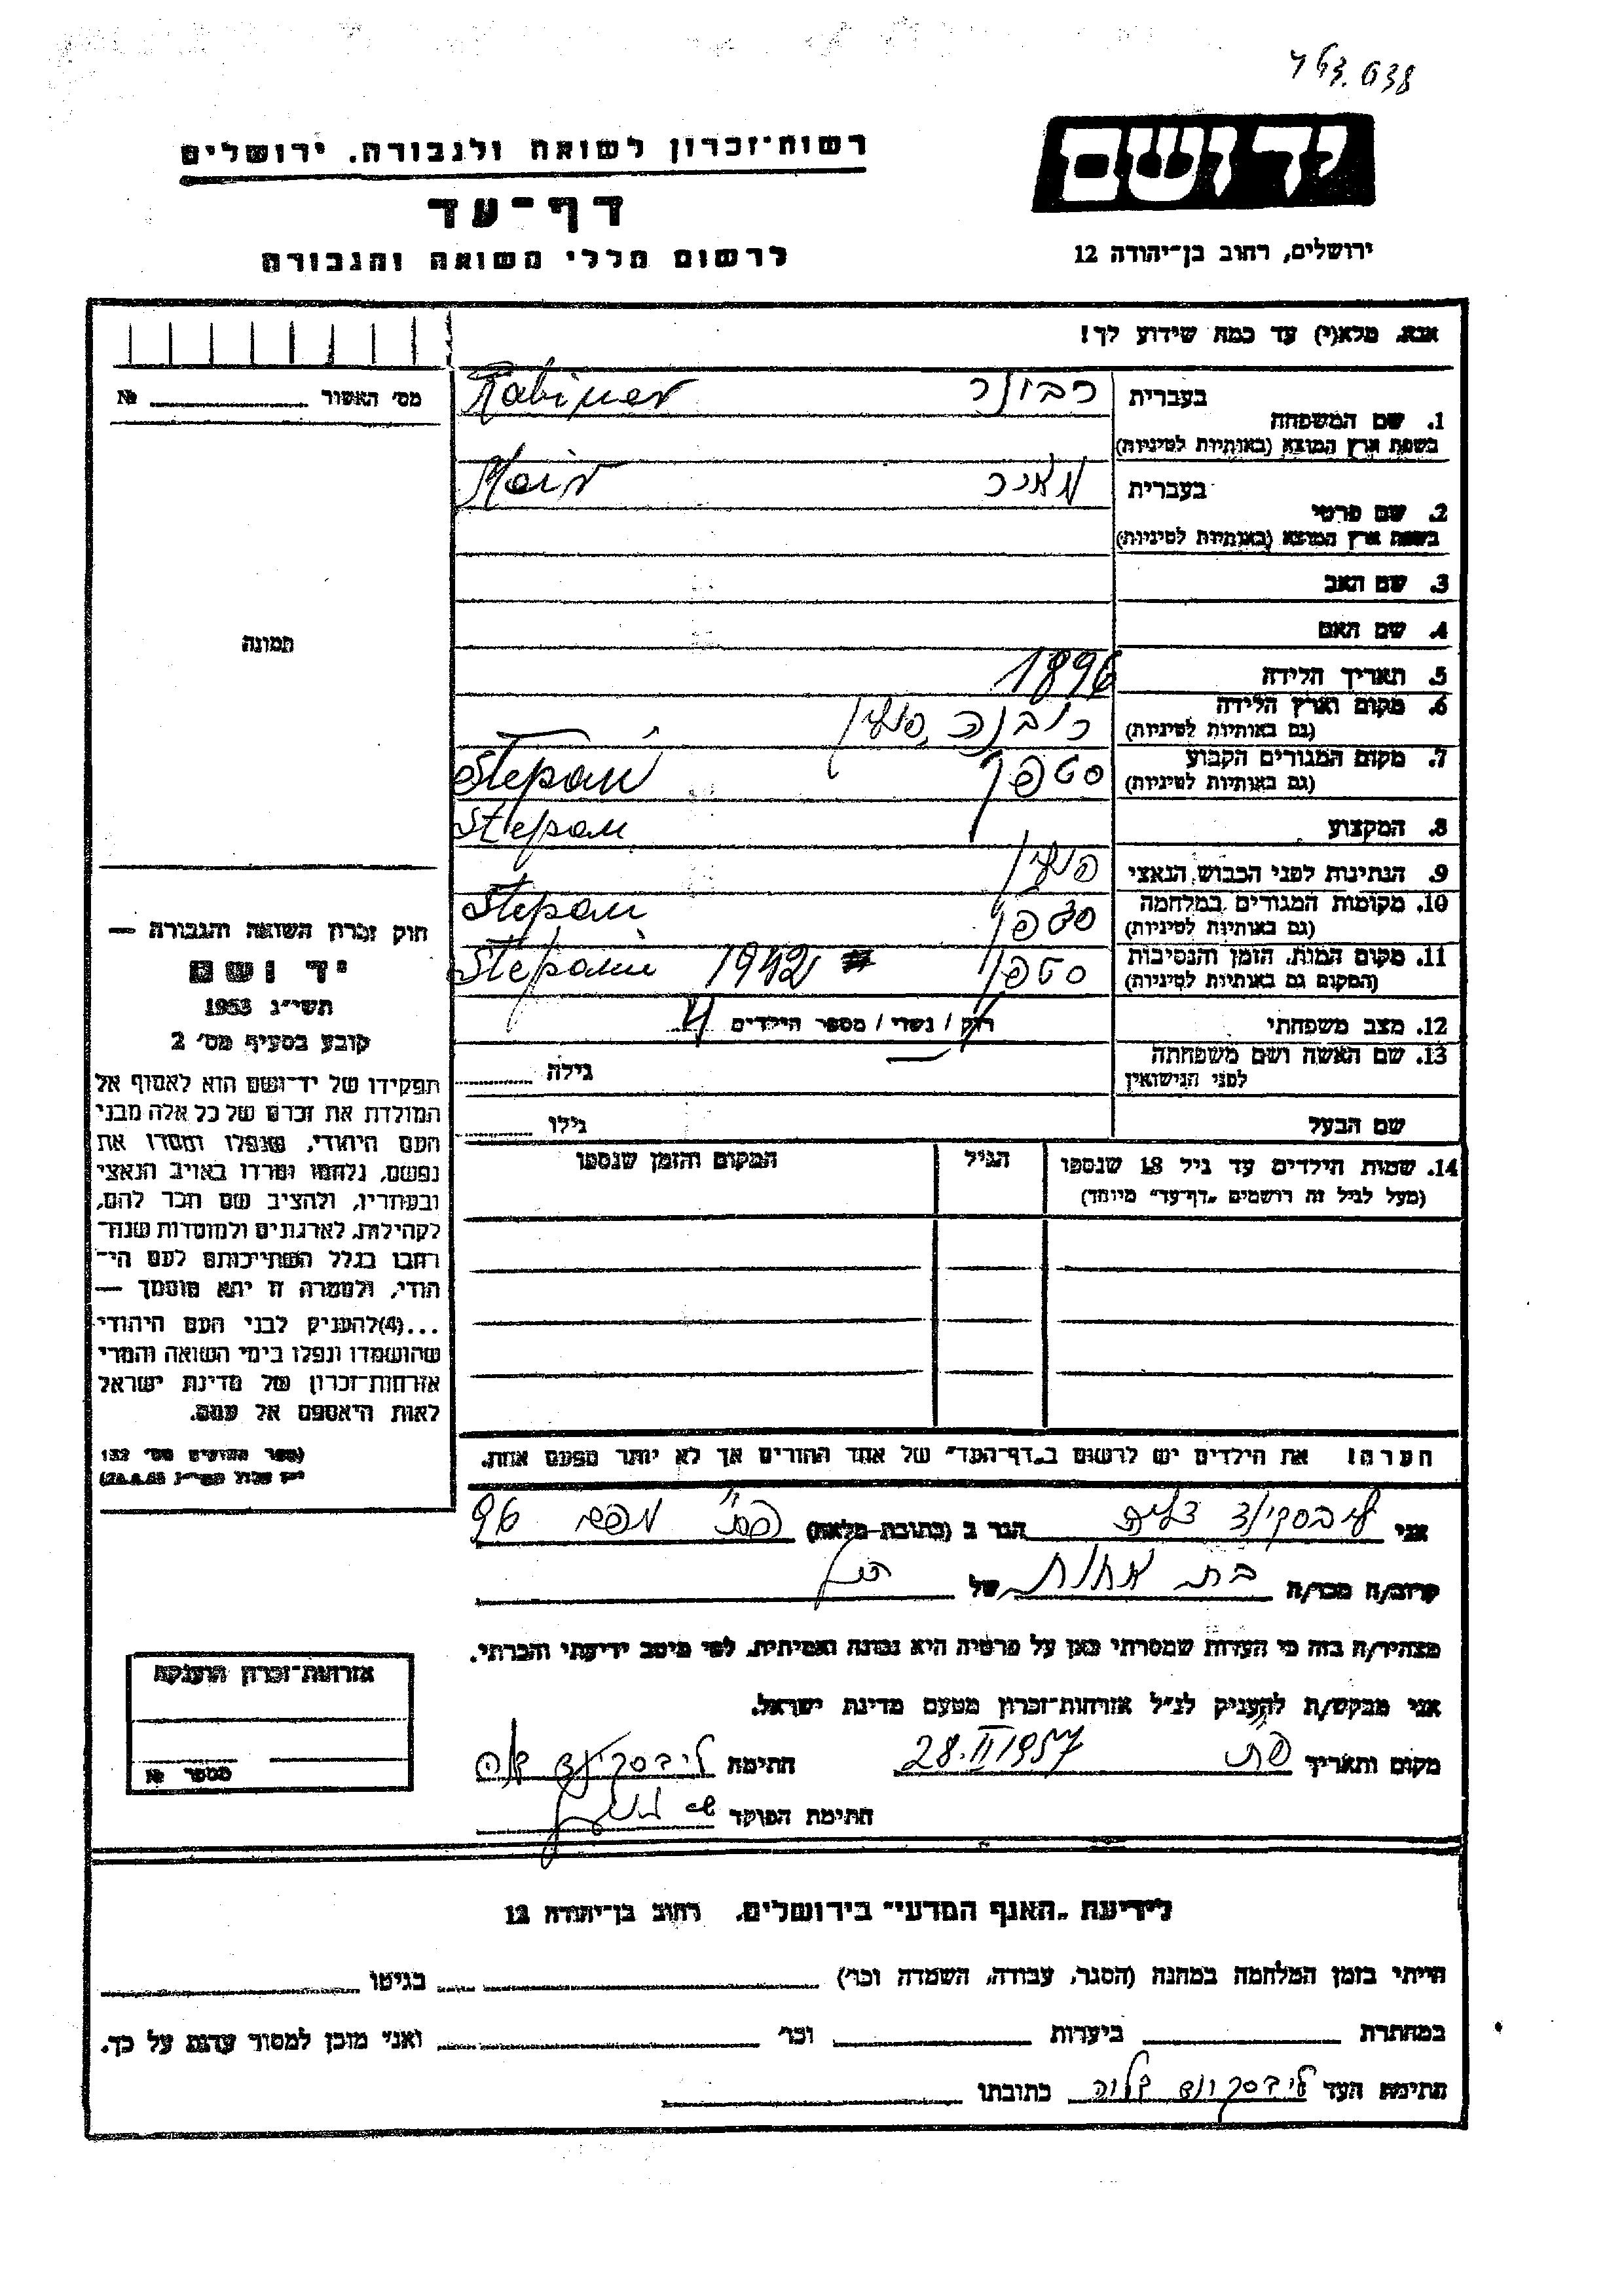 רשות־זכרון לשואה ולגבורה, ירושלים
דף־עד
לרשום חללי השואה והגבורה
יד ושם
ירושלים, רחוב בן־יהודה 12
אנא, מלא(י) עד כמה שידוע לך!
מס׳ האשור № 
1. שם המשפחה
בעברית
רבינר
Rabiner
בשפת ארץ המוצא (באותיות לטיניות)
2. שם פרטי
בעברית
מאיר
Meir
בשפת ארץ המוצא (באותיות לטיניות)
3. שם האב
4. שם האם
5. תאריך הלידה 1896
6. מקום וארץ הלידה
(גם באותיות לטיניות)
רובנה, פולין
7. מקום המגורים הקבוע
(גם באותיות לטיניות)
סטפן Stepań
8. המקצוע
Stepań
9. הנתינות לפני הכבוש הנאצי פולין
10. מקומות המגורים במלחמה
(גם באותיות לטיניות)
סטפן Stepań
11. מקום המות, הזמן והנסיבות
(המקום גם באותיות לטיניות)
סטפן 1942 Stepań
12. מצב משפחתי רוק / נשוי / מספר הילדים 4
13. שם האשה ושם משפחתה
לפני הנישואין
גילה
שם הבעל
גילו
14. שמות הילדים עד גיל 18 שנספו
(מעל לגיל זה רושמים „דף־עד״ מיוחד)
הגיל
המקום והזמן שנספו
תמונה
חוק זכרון השואה והגבורה —
יד ושם
תשי״ג 1953
קובע בסעיף מס׳ 2
תפקידו של יד־ושם הוא לאסוף אל
המולדת את זכרם של כל אלה מבני
העם היהודי, שנפלו ומסרו את
נפשם, נלחמו ומרדו באויב הנאצי
ובעוזריו, ולהציב שם וזכר להם,
לקהילות, לארגונים ולמוסדות שנח־
רבו בגלל השתייכותם לעם הי־
הודי, ולמטרה זו יהא מוסמך —
...(4) להעניק לבני העם היהודי
שהושמדו ונפלו בימי השואה והמרי
אזרחות־זכרון של מדינת ישראל
לאות היאספם אל עמם.
(ספר החוקים מס׳ 132
הערה! את הילדים יש לרשום ב„דף־העד״ של אחד ההורים אך לא יותר מפעם אחת.
אני
הגר ב (כתובת מלאה)
קרוב/ה מכר/ה בת אחות של
מצהיר/ה בזה כי העדות שמסרתי כאן על פרטיה היא נכונה ואמיתית, לפי מיטב ידיעתי והכרתי.
אני מבקש/ת להעניק לנ״ל אזרחות־זכרון מטעם מדינת ישראל.
מקום ותאריך 28.II 1957 חתימה
חתימת הפוקד
אזרחות־זכרון הוענקה
מספר №
לידיעת „האגף המדעי״ בירושלים, רחוב בן־יהודה 12
הייתי בזמן המלחמה במחנה (הסגר, עבודה, השמדה וכו׳) בגיטו
במחתרת ביערות וכו׳ ואני מוכן למסור עדות על כך.
חתימת העד כתובתו